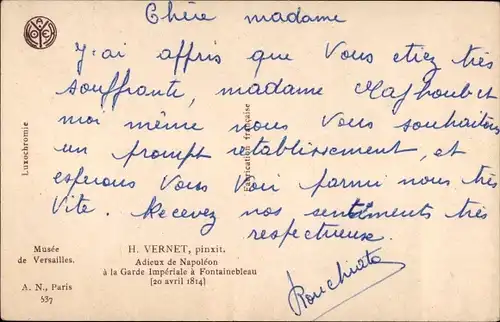 Chère madame
J'ai appris que Vous etiez très
souffrante, madame Maghoub et
moi même nous Vous souhaitons
un prompt retablissement, et
esperons Vous Voir parmi nous très
Vite. Recevez nos sentiments très
respectueux.
Luxochromie
Fabrication française
Musée
de Versailles.
A. N., Paris
537
H. VERNET, pinxit.
Adieux de Napoléon
à la Garde Impériale à Fontainebleau
(20 avril 1814)